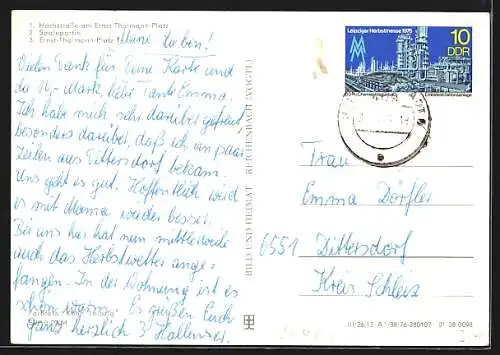 1. Hochstraße am Ernst-Thälmann-Platz
2. Saalepartie
3. Ernst-Thälmann-Platz
Meine Lieben!
Vielen Dank für Eure Karte und
die 10,- Mark, liebe Tante Emma.
Ich habe mich sehr darüber gefreut
besonders darüber, daß ich ein paar
Zeilen aus Dittersdorf bekam.
Uns geht es gut. Hoffentlich wird
es mit Mama wieder besser.
Bei uns hier hat nun mittlerweile
auch das Herbstwetter ange-
fangen. In der Wohnung ist es
schön warm. Es grüßen Euch
ganz herzlich 3 Hallenser.
BILD UND HEIMAT REICHENBACH (VOGTL)
Leipziger Herbstmesse 1975
10
DDR
Frau
Emma Dörfler
6551 Dittersdorf
Kreis Schleiz
III/26/13 A 1/38/76 380107 01 08 0098